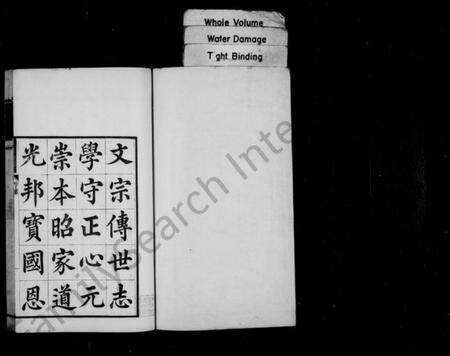 Whole Volume
Water Damage
Tight Binding
文宗傳世志
學守正心元
崇本昭家道
光邦寶國恩
FamilySearch Inte